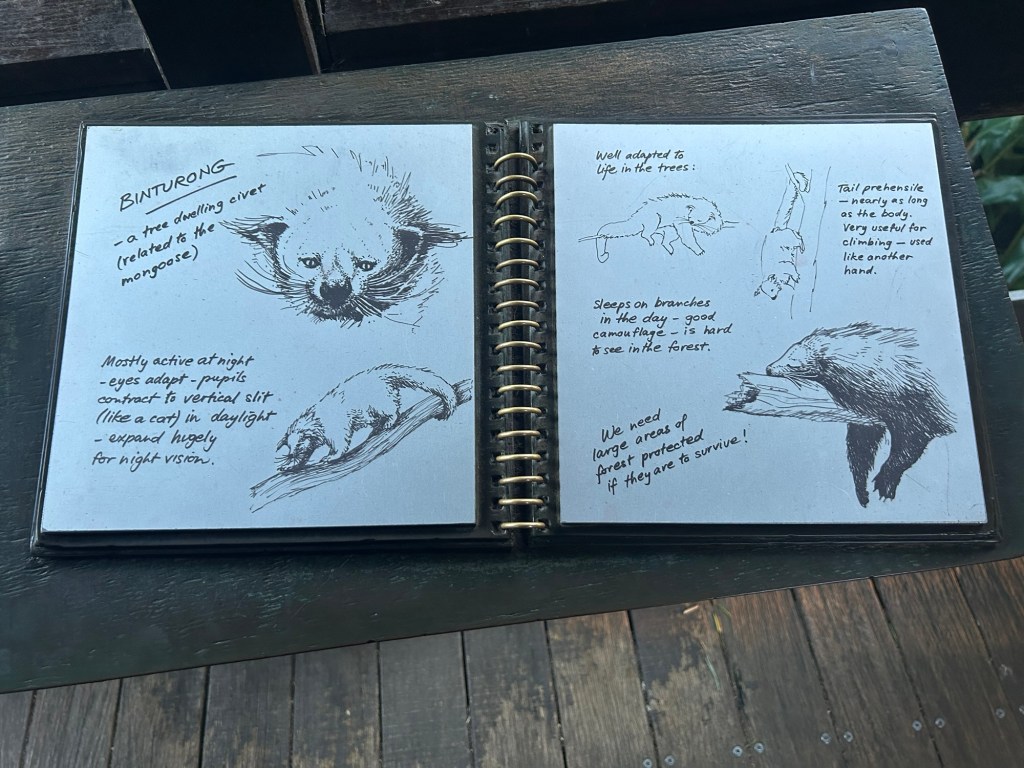 BINTURONG
- a tree dwelling civet
(related to the
mongoose)
Mostly active at night
- eyes adapt - pupils
contract to vertical slit
(like a cat) in daylight
- expand hugely
for night vision.
Well adapted to
life in the trees:
Tail prehensile
- nearly as long
as the body.
Very useful for
climbing - used
like another
hand.
Sleeps on branches
in the day - good
camouflage - is hard
to see in the forest.
We need
large areas of
forest protected
if they are to survive!